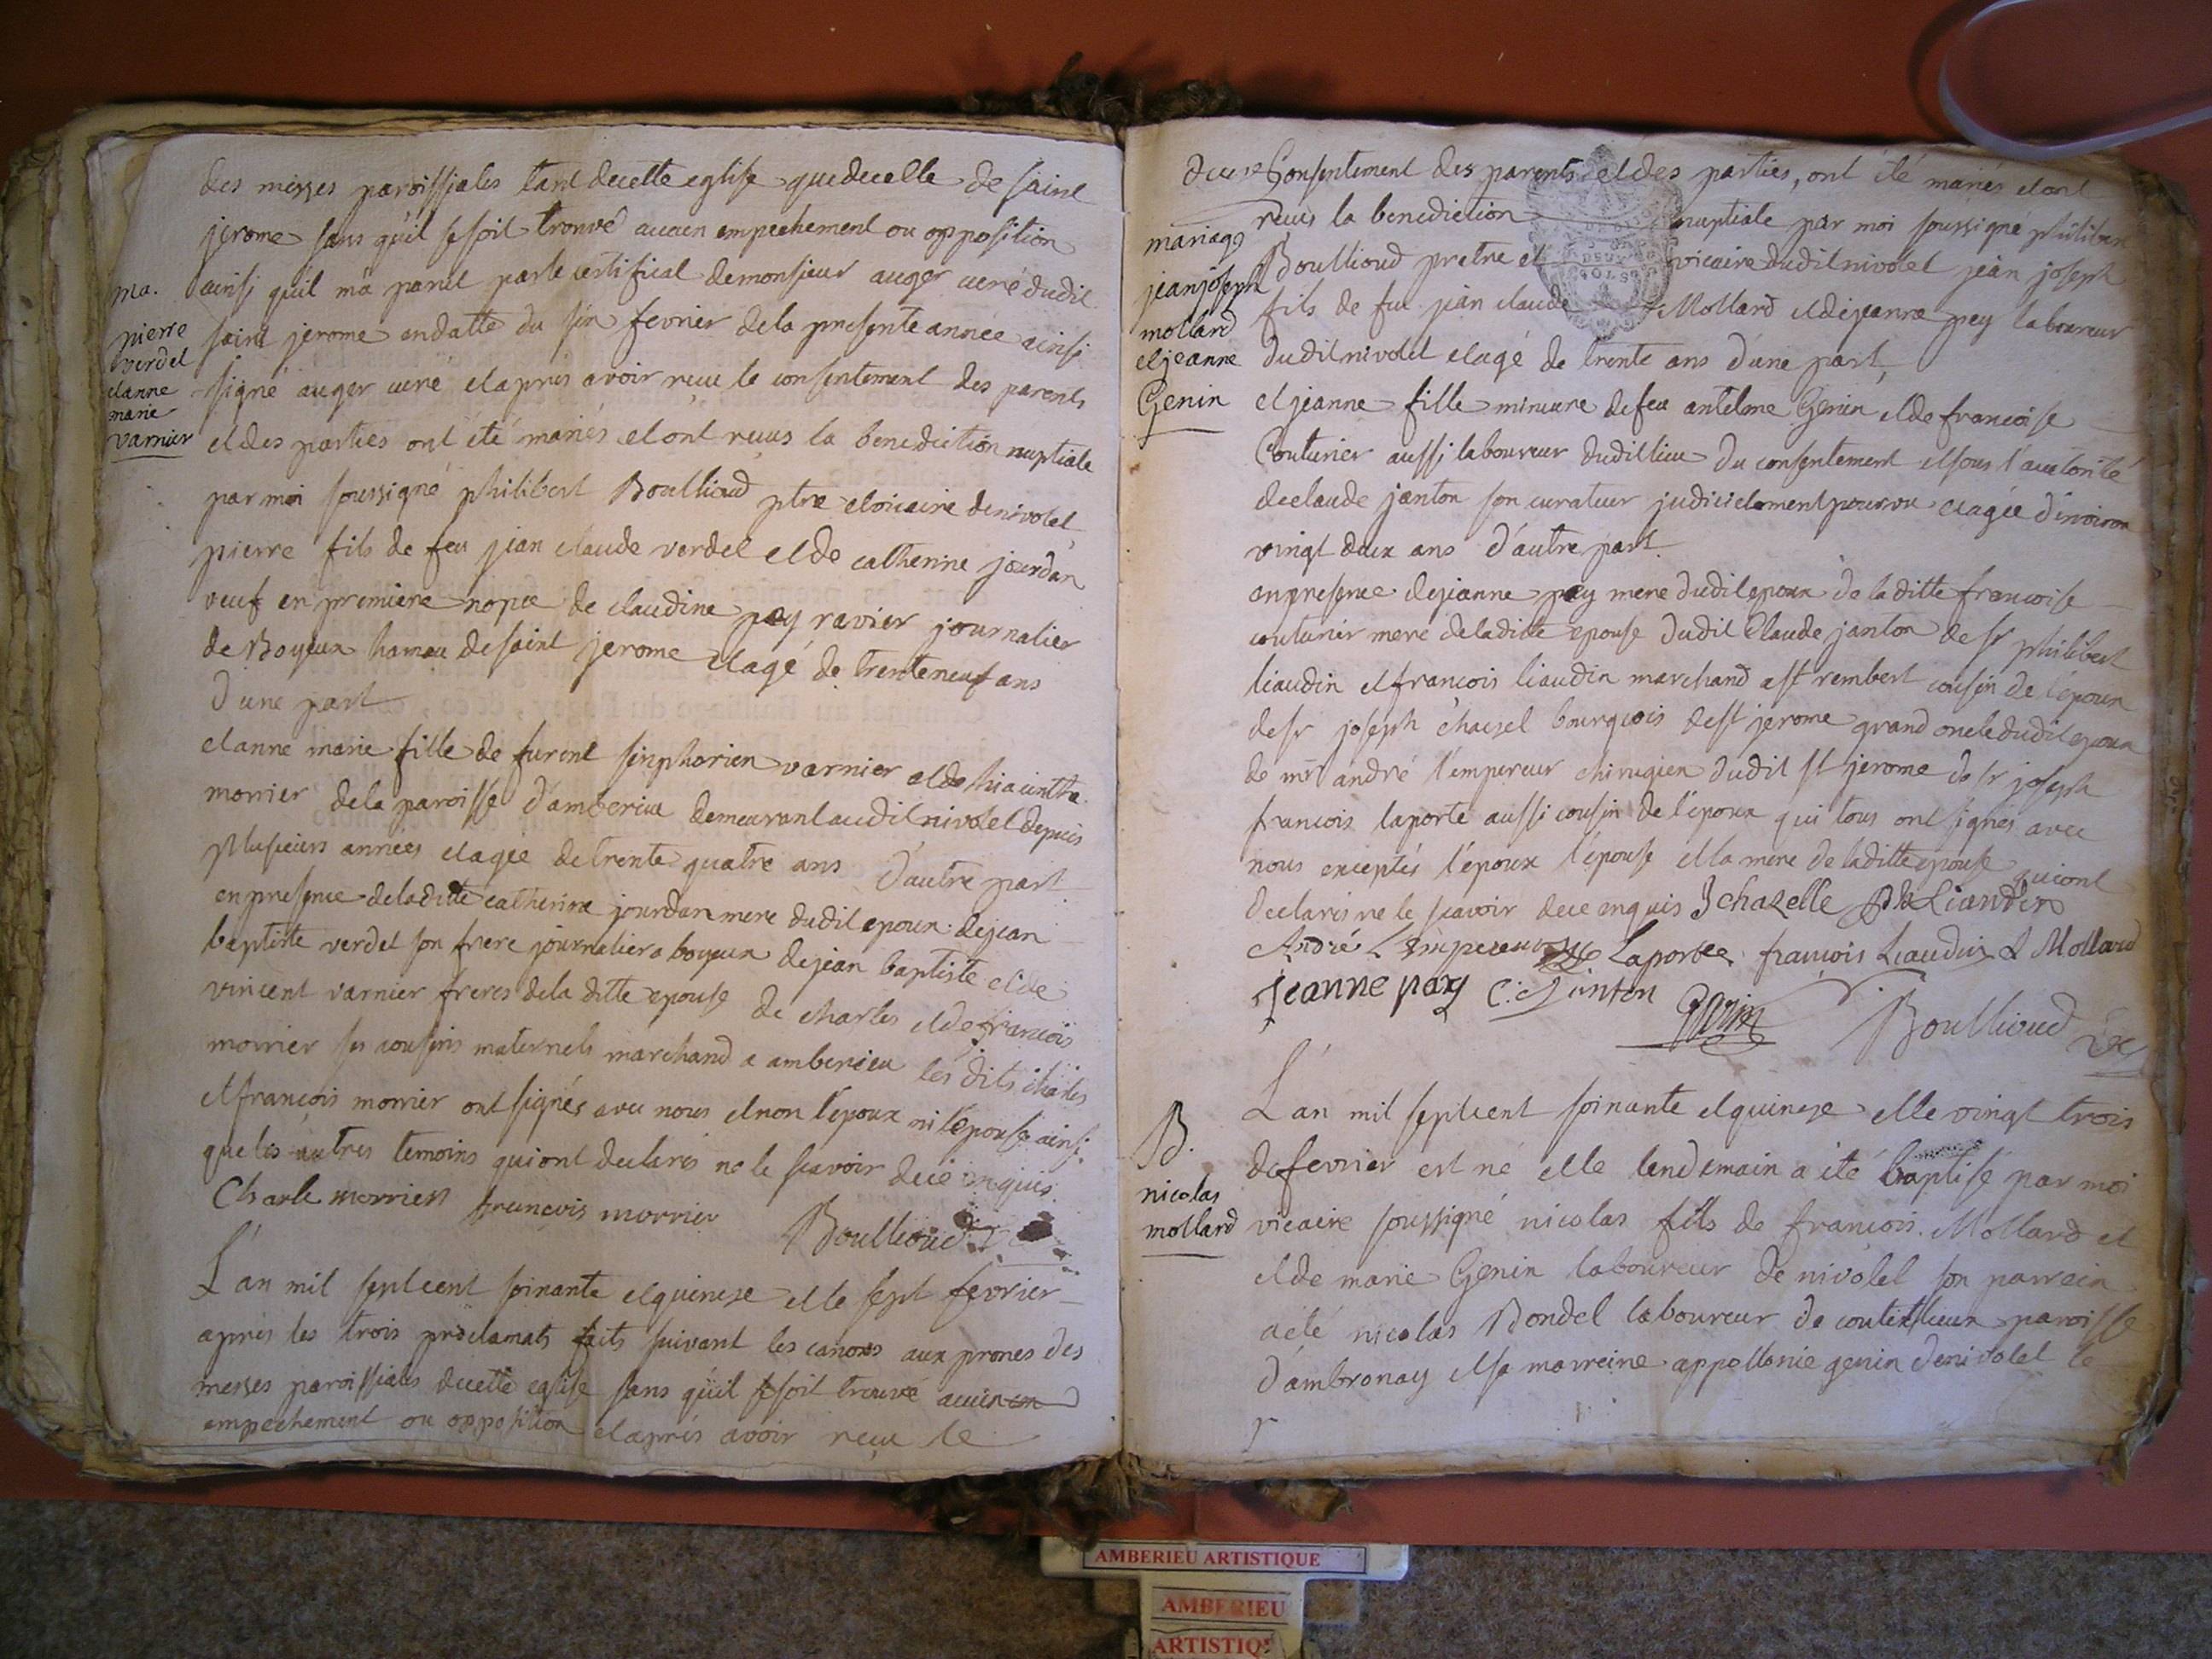 des messes paroissiales tant decette eglise que decelle de saint
jerome sans qu'il se soit trouvé aucun empechement ou opposition
ma. ainsi quil m'a parut par le certificat demonsieur auger curé dudit
pierre saint jerome endatte du six fevrier dela presente année ainsi
verdet
et anne signé auger curé et après avoir reçu le consentement des parents
marie
varnier et des parties ont été mariés et ont reçus la benediction nuptiale
par moi soussigné philibert Boullioud ptre et vicaire de nivolet
pierre fils de feu jean claude verdet et de catherine jourdan
veuf en premiere nopce de claudine pey ravier journalier
de Boyeux hameau de saint jerome et agé de trente neuf ans
d'une part
et anne marie fille de furent sinphorien varnier et de hiacinthe
morrier de la paroisse d'amberieu demeurant audit nivolet depuis
plusieurs années et agée de trente quatre ans d'autre part
en presence de la ditte catherine jourdan mere dudit epoux de jean
baptiste verdet son frere journalier a boyeux de jean baptiste et de
vincent varnier freres de la ditte epouse de charles et de francois
morrier ses cousins maternels marchand a amberieu les dits charles
et francois morrier ont signés avec nous et non l'epoux ni l'epouse ainsi
que les autres temoins qui ont declarés ne le scavoir de ce enquis.
Charle morrier francois morrier Boullioud
L'an mil sept cent soixante et quinze et le sept fevrier
après les trois proclamats faits suivant les canons aux prones des
messes paroissiales de cette eglise sans qu'il se soit trouvé aucun em
empechement ou opposition et après avoir reçu le
consentement des parents et des parties, ont été mariés et ont
reçus la benediction nuptiale par moi soussigné philibert
mariage
Boullioud pretre et vicaire dudit nivolet jean joseph
jean joseph
fils de feu jean claude Mollard et de jeanne pey laboureur
mollard
et jeanne dudit nivolet et agé de trente ans d'une part,
Genin et jeanne fille mineure de feu antelme Genin et de francoise
Couturier aussi laboureur dudit lieu du consentement et sous l'autorité
de claude janton son curateur judicielement pourvu et agée d'environ
vingt deux ans d'autre part.
en presence de jeanne pey mere dudit epoux de la ditte francoise
couturier mere de la ditte epouse dudit Claude janton de sr philibert
liaudin et francois liaudin marchand a st rembert cousin de l'époux
de sr joseph chazel bourgeois de st jerome grand oncle dudit epoux
de mr andré l'empereur chirugien dudit st jerome de sr joseph
francois laporte aussi cousin de l'époux qui tous ont signés avec
nous exceptés l'époux l'épouse et la mere de la ditte epouse qui ont
declarés ne le scavoir de ce enquis J chazelle Ph Liaudin
André L'Empereur Laporte francois Liaudin J Mollard
Jeanne pay C. Janton Genin Boullioud
L'an mil sept cent soixante et quinze et le vingt trois
B. de fevrier est né et le lendemain a été baptisé par moi
nicolas
mollard vicaire soussigné nicolas fils de francois Mollard et
et de marie Genin laboureur de nivolet son parrein
a été nicolas Bondet laboureur de coutelieux paroisse
d'ambronay et sa marreine appollonie genin de nivolet le
AMBERIEU ARTISTIQUE
AMBERIEU
ARTISTIQ